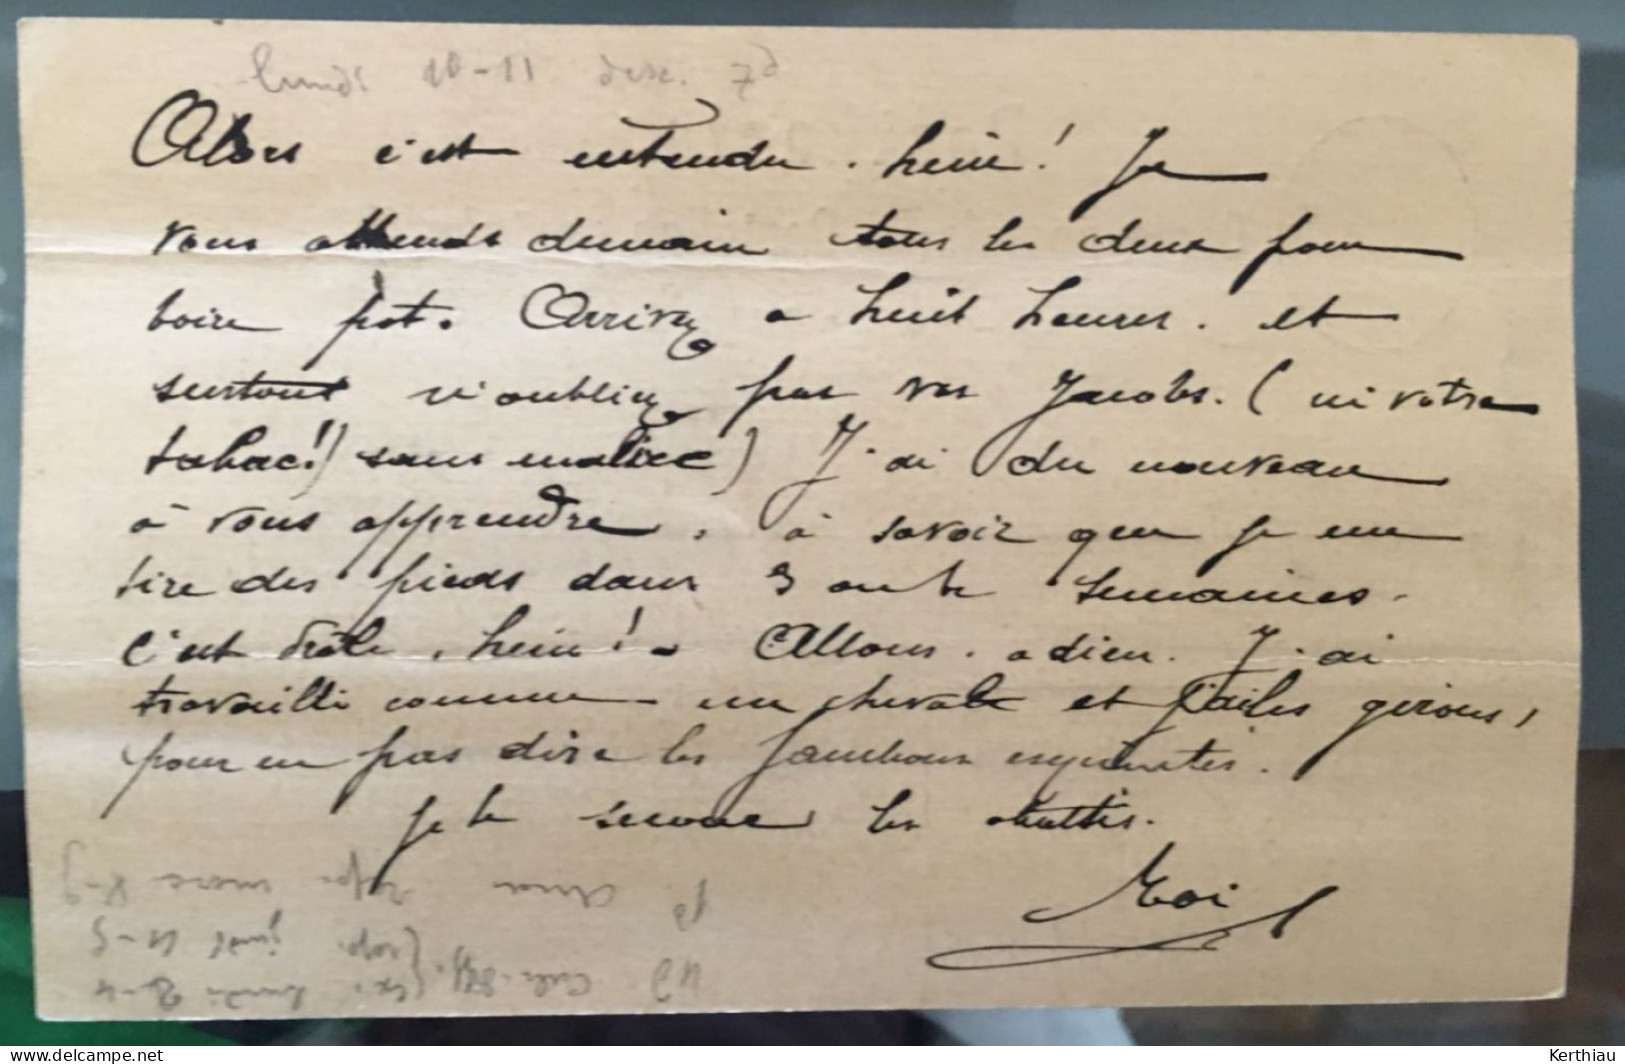 lundi 10-11
Alors c'est entendu. hein! Je
vous attends demain tous les deux pour
boire pot. Arrivez a huit heures. et
surtout n'oubliez pas vos Jacobs. (ni votre
tabac!) sans malice) J'ai du nouveau
à vous apprendre, à savoir que je me
tire des pieds dans 3 ou 4 semaines.
C'est drôle, hein! - Allons. adieu. J'ai
travaillé comme un cheval et j'ai les genoux,
pour ne pas dire les jambons esquintés.
Je te secoue les
Moi
lundi
delcampe.net
Kerthiau